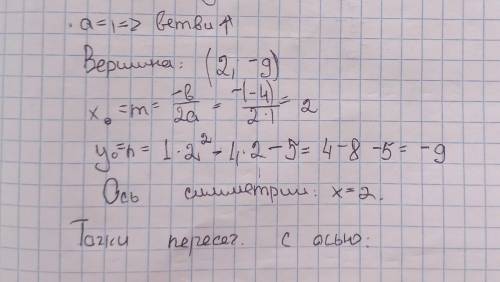 · a = 1 => ветви ↑
Вершина: (2, -9)
x₀ = m = -b/2a = -(-4)/2·1 = 2
y₀ = n = 1·2² - 4·2 - 5 = 4 - 8 - 5 = -9
Ось симметрии: x = 2.
Точки пересеч. с осью: